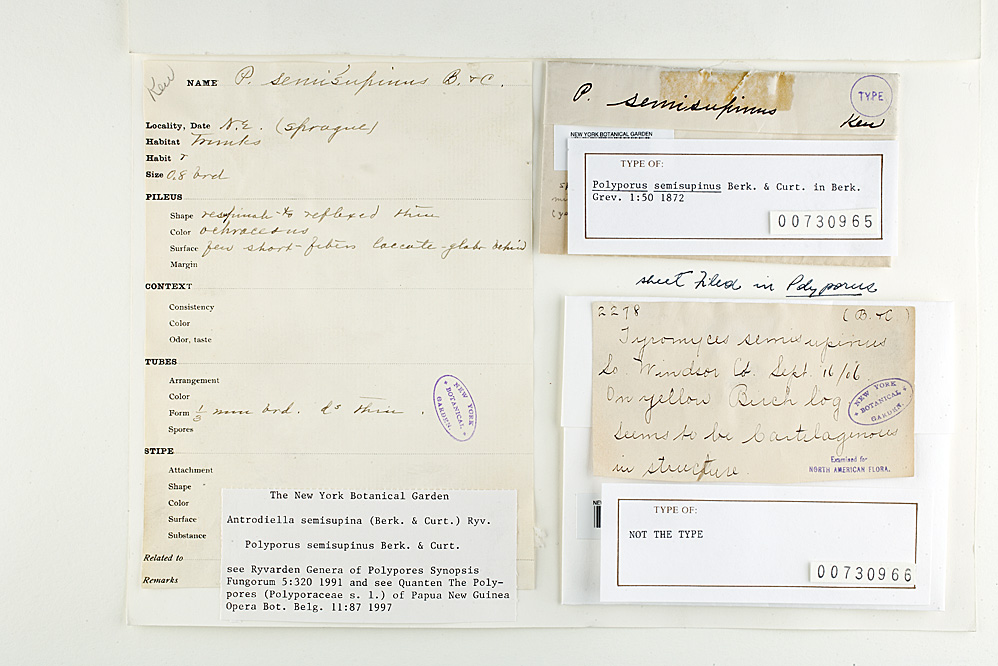 Kew
NAME P. semisupinus B. & C.
Locality, Date N.E. (Sprague)
Habitat Trunks
Habit r
Size 0.8 brd
PILEUS
Shape resupinate to reflexed thin
Color ochraceous
Surface few short-fibers laccate-glabr behind
Margin
CONTEXT
Consistency
Color
Odor, taste
TUBES
Arrangement
Color
Form 1/3 mm brd. ds thin.
Spores
STIPE
Attachment
Shape
Color
Surface
Substance
Related to
Remarks
NEW YORK BOTANICAL GARDEN.
The New York Botanical Garden
Antrodiella semisupina (Berk. & Curt.) Ryv.
Polyporus semisupinus Berk. & Curt.
see Ryvarden Genera of Polypores Synopsis
Fungorum 5:320 1991 and see Quanten The Poly-
pores (Polyporaceae s. l.) of Papua New Guinea
Opera Bot. Belg. 11:87 1997
P. semisupinus
TYPE
Kew
NEW YORK BOTANICAL GARDEN
TYPE OF:
Polyporus semisupinus Berk. & Curt. in Berk.
Grev. 1:50 1872
00730965
sheet filed in Polyporus
2278 (B. & C.)
Tyromyces semisupinus
So. Windsor Ct. Sept. 16/06
On yellow Birch log
Seems to be Cartelagenous
in structure.
NEW YORK BOTANICAL GARDEN.
Examined for
NORTH AMERICAN FLORA.
TYPE OF:
NOT THE TYPE
00730966